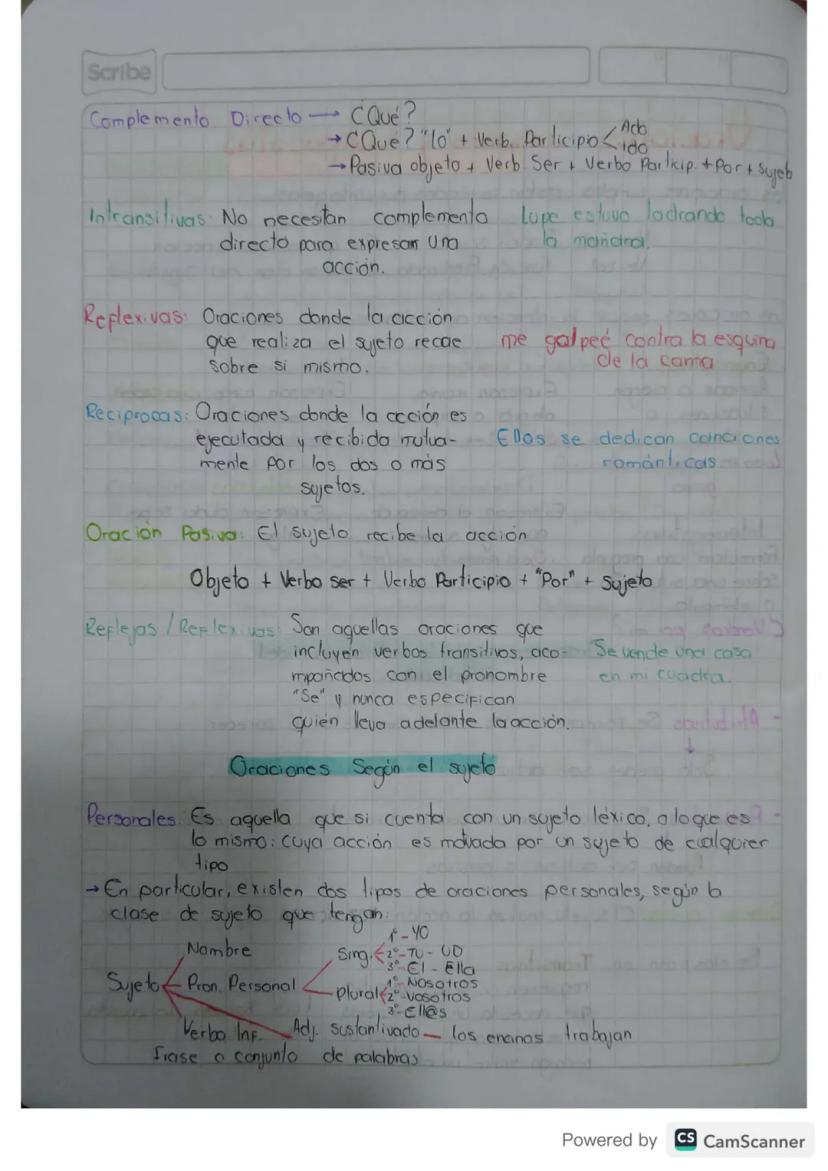 Scribe
Complemento Directo → ¿Qué?
→ ¿Qué? "lo" + Verb. Participio < Ado
ido
→ Pasiva objeto + Verb Ser + Verbo Particip. + Por + Sujeto
Intransitivas: No necesitan complemento Lupe estuvo ladrando toda
directo para expresar una la mañana.
acción.
Reflexivas: Oraciones donde la acción
que realiza el sujeto recae me golpeé contra la esquina
sobre si mismo. de la cama
Reciprocas: Oraciones donde la acción es
ejecutada y recibida mutua- Ellos se dedican canciones
mente por los dos o más románticas
sujetos.
Oración Pasiva: El sujeto recibe la acción
Objeto + Verbo ser + Verbo Participio + "Por" + Sujeto
Reflejas / Reflexivas: Son aquellas oraciones que
incluyen verbos transitivos, aco- Se vende una casa
mpañados con el pronombre en mi cuadra.
"Se" y nunca especifican
quién lleva adelante la acción.
Oraciones Según el sujeto
Personales: Es aquella que si cuenta con un sujeto léxico, o lo que es
lo mismo: cuya acción es motivada por un sujeto de cualquier
tipo
→ En particular, existen dos tipos de oraciones personales, según la
clase de sujeto que tengan:
1º - Yo
Nombre Sing. 2º - Tu - UD
3º - El - Ella
Sujeto Pron. Personal 1º Nosotros
Plural 2º - Vosotros
3º - Ell@s
Verbo Inf. Adj. sustantivado — los enanos trabajan
Frase o conjunto de palabras
Powered by CS CamScanner